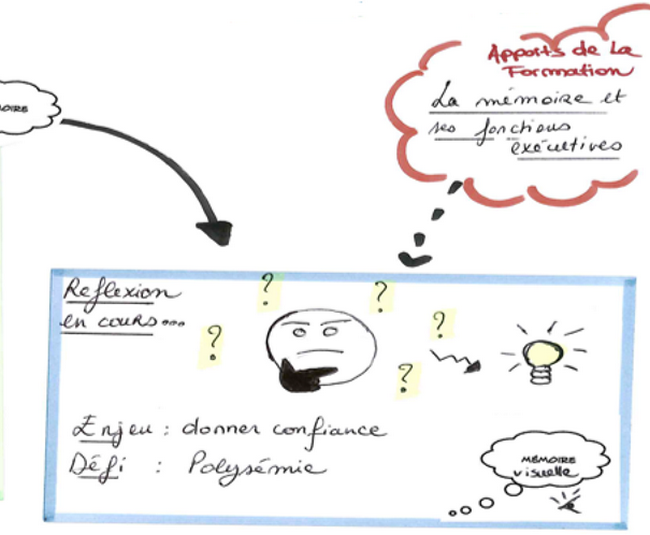 OIRE
Apports de La
Formation
La mémoire et
ses fonctions
exécutives
Reflexion
en cours...
?
?
?
?
?
Enjeu : donner confiance
Défi : Polysémie
MEMOIRE
visuelle